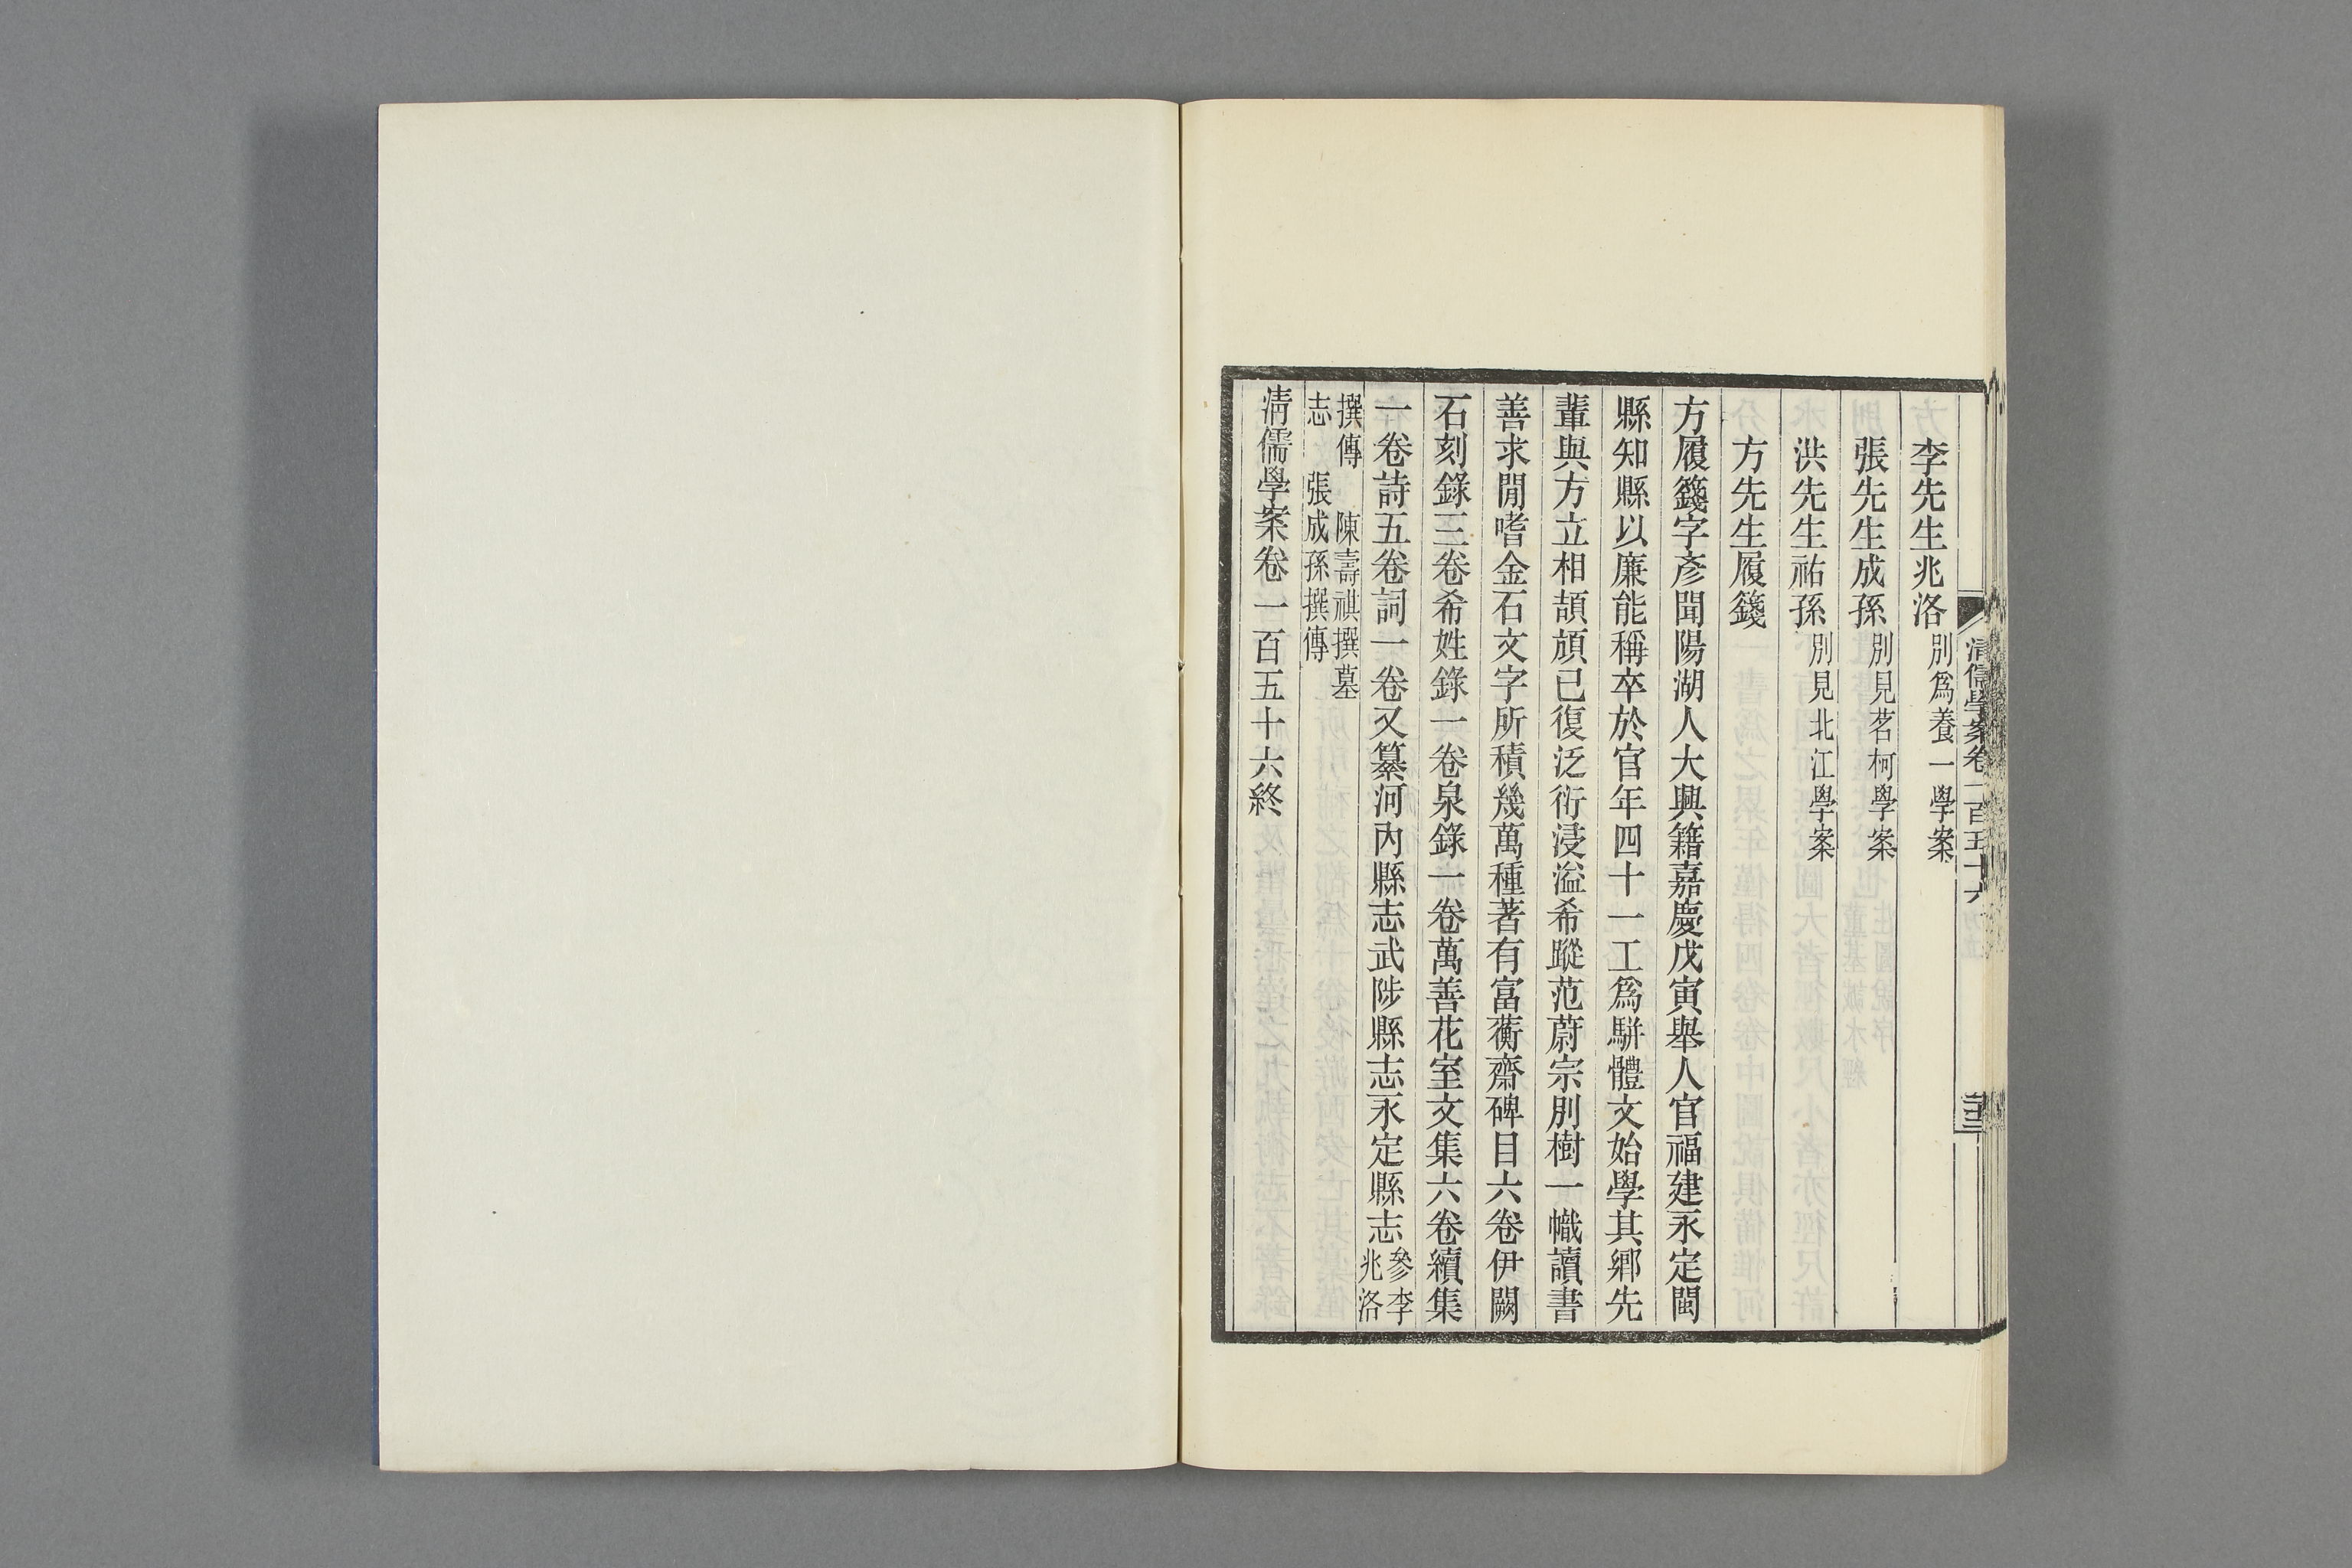 清儒學案卷一百五十六
李先生兆洛別爲養一學案
張先生成孫別見茗柯學案
洪先生祐孫別見北江學案
方先生履籛
方履籛字彥聞陽湖人大興籍嘉慶戊寅舉人官福建永定閩
縣知縣以廉能稱卒於官年四十一工爲駢體文始學其鄉先
輩與方立相頡頏已復泛衍浸溢希蹤范蔚宗別樹一幟讀書
善求閒嗜金石文字所積幾萬種著有富蘅齋碑目六卷伊闕
石刻錄三卷希姓錄一卷泉錄一卷萬善花室文集六卷續集
一卷詩五卷詞一卷又纂河內縣志武陟縣志永定縣志參李
兆洛
撰傳 陳壽祺撰墓
志 張成孫撰傳
清儒學案卷一百五十六終